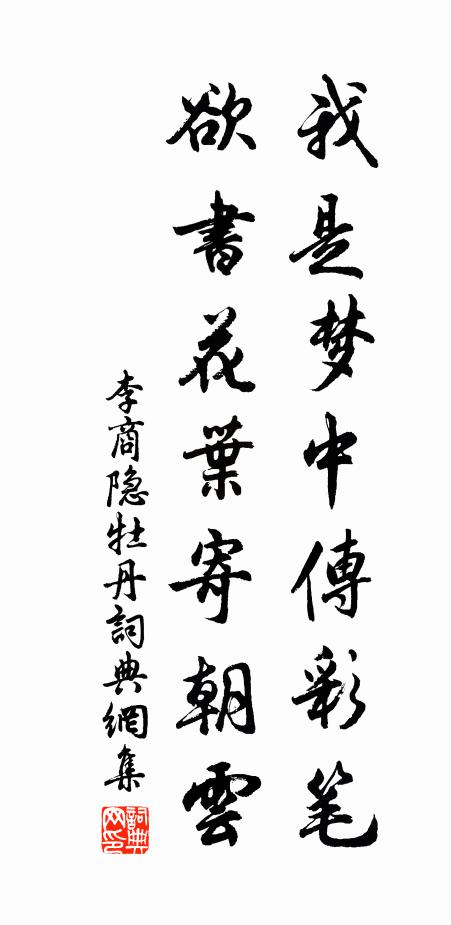 我是梦中傳彩笔
欲書花葉寄朝雲
李商隐牡丹詞典網集
詞典
网印